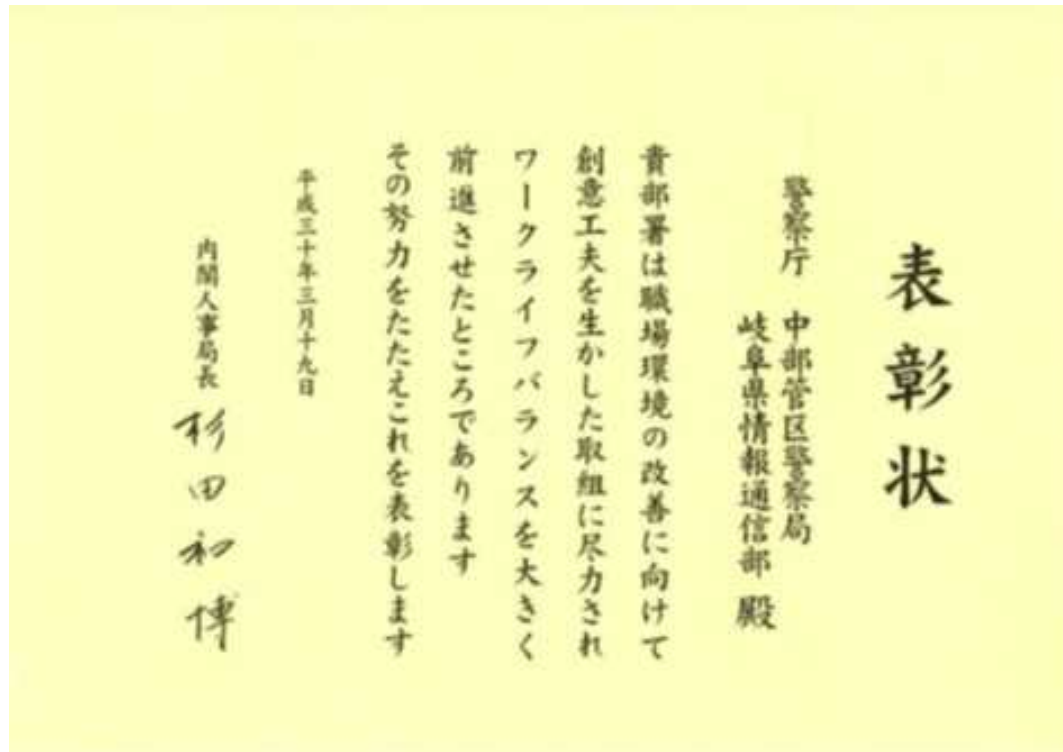 表彰状
警察庁 中部管区警察局
岐阜県情報通信部 殿
貴部署は職場環境の改善に向けて
創意工夫を生かした取組に尽力され
ワークライフバランスを大きく
前進させたところであります
その努力をたたえこれを表彰します
平成三十年三月十九日
内閣人事局長 杉田和博